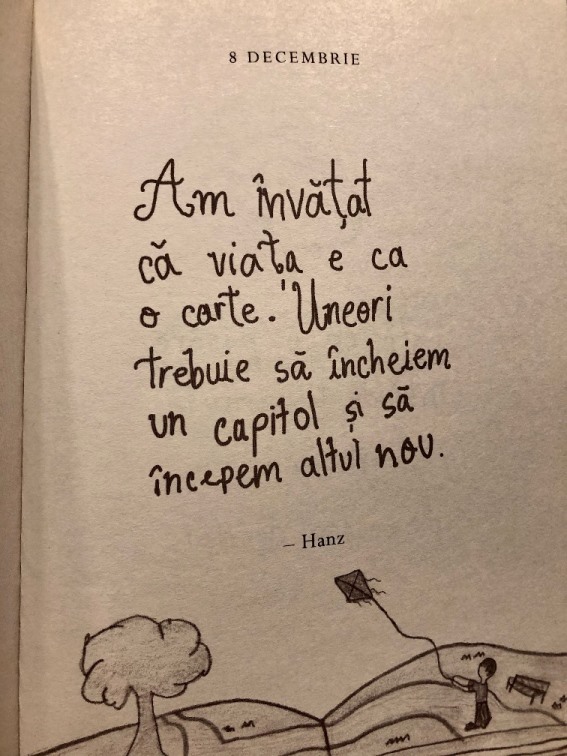 8 DECEMBRIE
Am învățat
că viața e ca
o carte. Uneori
trebuie să încheiem
un capitol și să
începem altul nou.
– Hanz